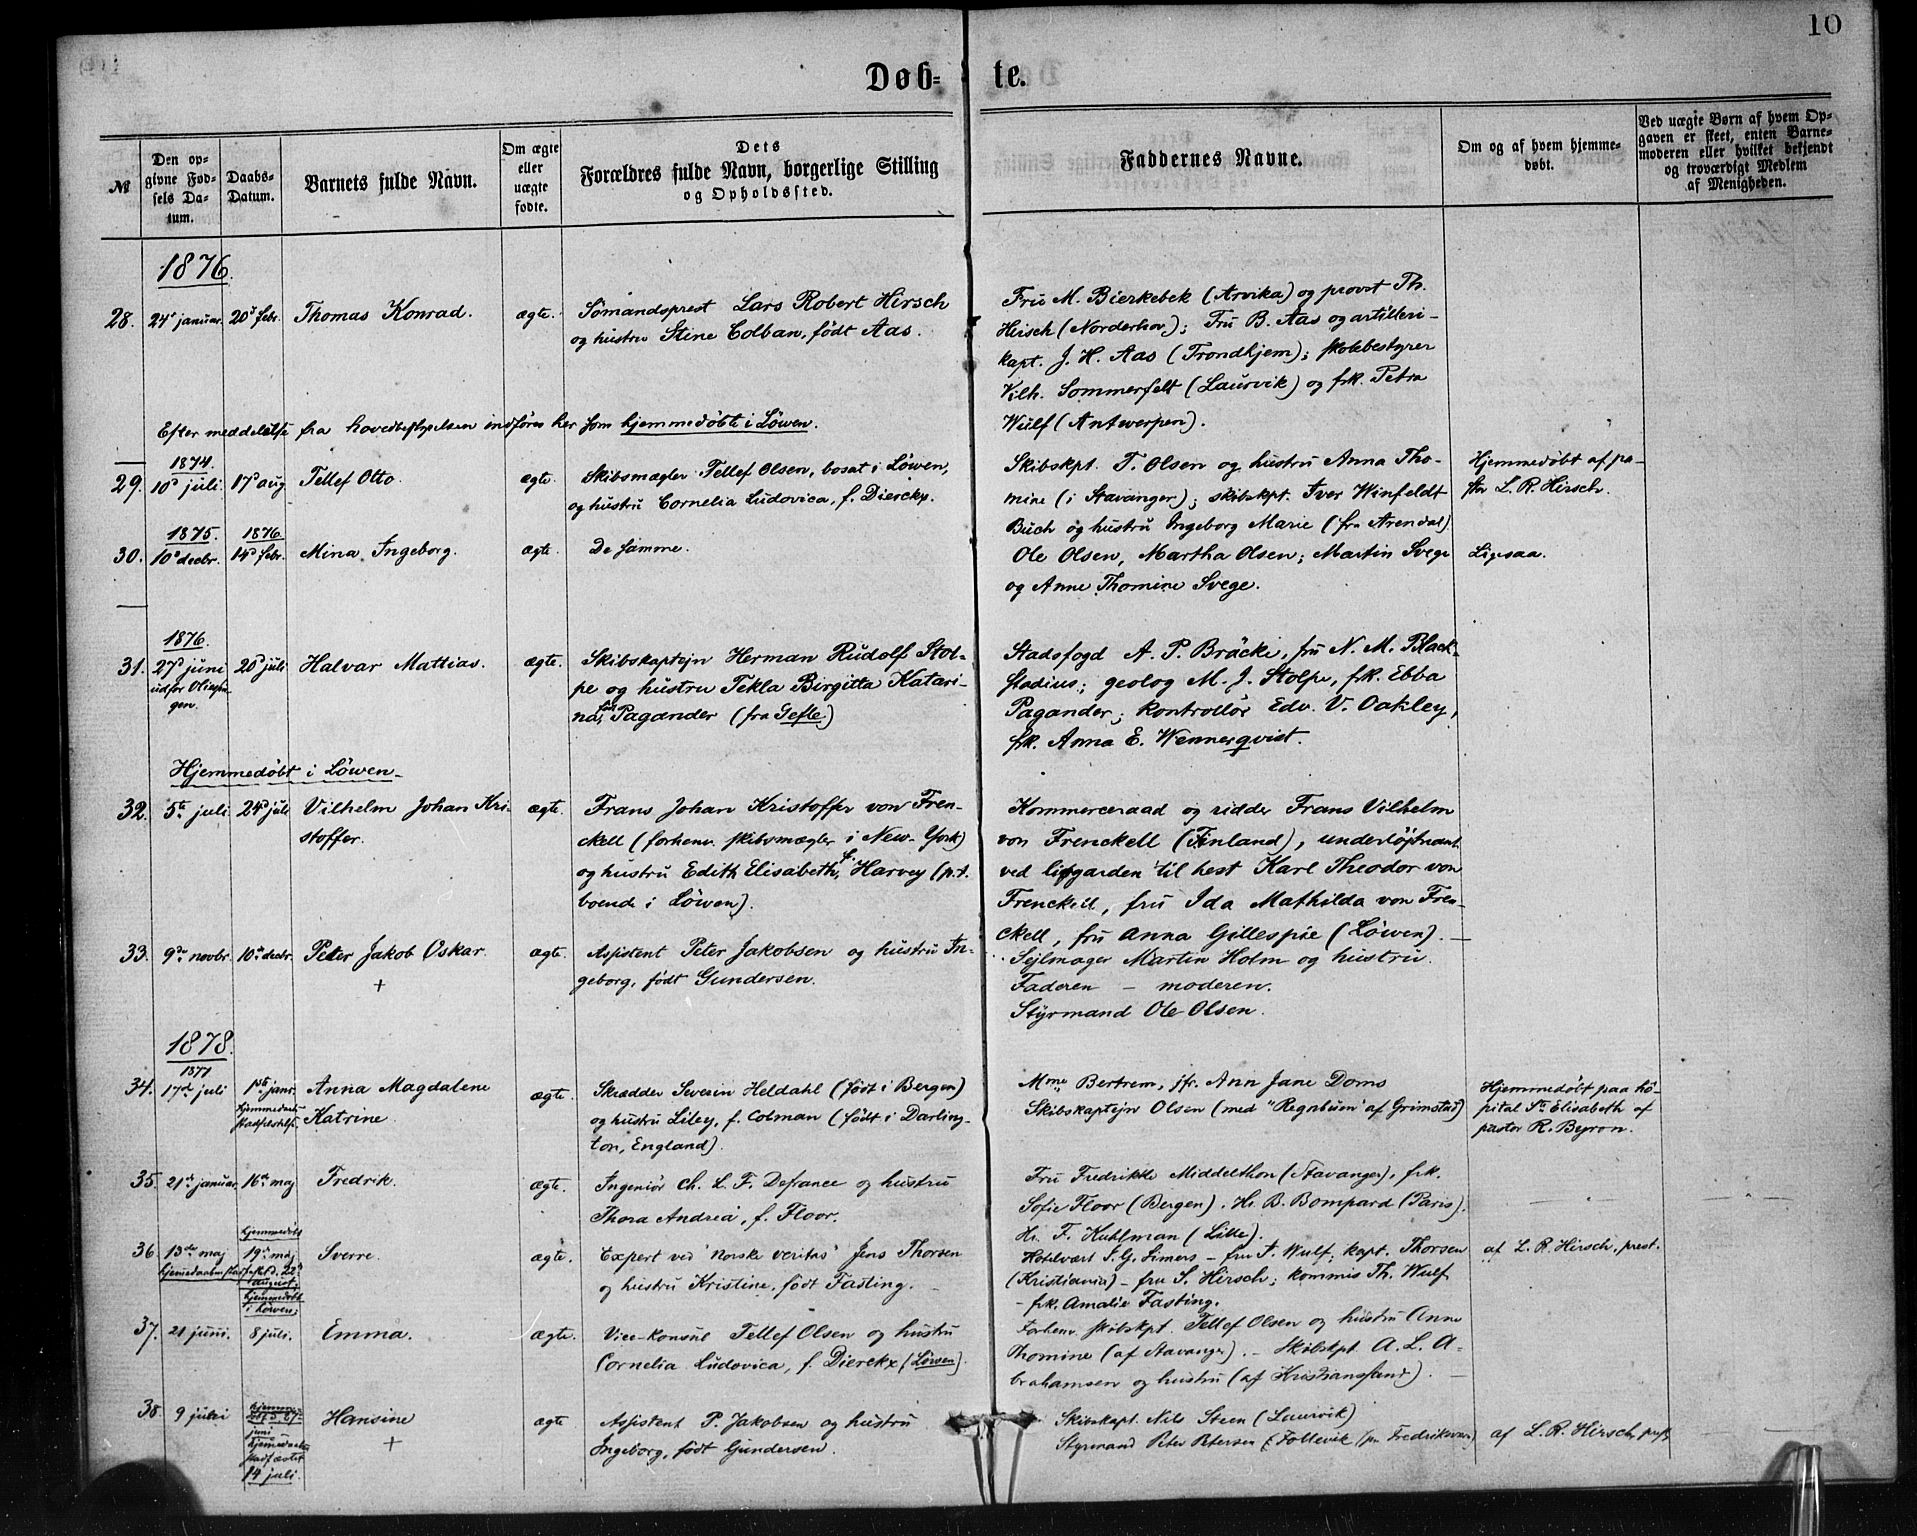 10
Døb- te.
№
Den op-
givne Fød-
sels Da-
tum.
Daabs-
Datum.
Barnets fulde Navn.
Om ægte
eller
uægte
fødte.
Dets
Forældres fulde Navn, borgerlige Stilling
og Opholdssted.
Faddernes Navne.
Om og af hvem hjemme-
døbt.
Ved uægte Børn af hvem Op-
gaven er skeet, enten Barne-
moderen eller hvilket bekjendt
og troværdigt Medlem
af Menigheden.
1876.
28. 24d januar. 20d febr. Thomas Konrad. ægte. Sømandsprest Lars Robert Hirsch
og hustru Stine Colban, født Aas.
Fru M. Bierkebek (Arvika) og provst Th.
Hirsch (Norderhov); Fru B. Aas og artilleri-
kapt. J. H. Aas (Trondhjem); skolebestyrer
Vilh. Sommerfelt (Laurvik) og frk. Petra
Wulf (Antwerpen).
Efter meddelelse fra hovedbestyrelsen indføres her som hjemmedøbte i Löwen.
1874.
29. 10d juli. 17d aug Tellef Otto. ægte. Skibsmægler Tellef Olsen, bosat i Löwen,
og hustru Cornelia Ludovica, f. Dierckx.
Skibskpt. T. Olsen og hustru Anna Tho-
mine (i Stavanger); skibskpt. Iver Winfeldt
Buch og hustru Ingeborg Marie (fra Arendal)
Hjemmedøbt af pa-
stor L. R. Hirsch.
1875. 1876.
30. 10d decbr. 14d febr. Mina Ingeborg. ægte. De samme.
Ole Olsen, Martha Olsen; Martin Svege
og Anne Thomine Svege.
Ligesaa.
1876.
31. 27d juni 20d juli Halvar Mattias. ægte. Skibskaptejn Herman Rudolf Stol-
pe og hustru Tekla Birgitta Katari-
na, Pagander (fra Gefle)
Stadsfogd A. P. Bräcke, fru N. M. Black-
stadius; geolog M. J. Stolpe, frk. Ebba
Pagander; kontrollør Edv. V. Oakley,
frk. Anna E. Wennerqvist.
Hjemmedøbt i Löwen.
32. 5te juli. 24d juli Vilhelm Johan Kri-
stoffer. ægte. Frans Johan Kristoffer von Fren-
ckell (forhenv. skibsmægler i New-York)
og hustru Edith Elisabeth, f. Harvey (p.t.
boende i Löwen).
Kommerceraad og ridder Frans Vilhelm
von Frenckell (Finland), underløjtnant
ved livgarden til hest Karl Theodor von
Frenckell, fru Ida Mathilda von Fren-
ckell, fru Anna Gillespie (Löwen).
33. 9de novbr. 10de decbr. Peter Jakob Oskar. ægte. Assistent Peter Jakobsen og hustru In-
geborg, født Gundersen.
+
Sejlmager Martin Holm og hustru.
Faderen - moderen.
Styrmand Ole Olsen.
1878.
1877
34. 17de juli 1ste janr. Anna Magdalene
Katrine. ægte. Skrædder Severin Heldahl (født i Bergen)
og hustru Liley, f. Colman (født i Darling-
ton, England).
Mme Bertrem, jfr. Ann Jane Doms
Skibskaptejn Olsen (med "Regnbuen" af Grimstad)
Hjemmedøbt paa ho-
pital Ste Elisabeth af
pastor R. Byron.
35. 21de januar. 16de maj Fredrik. ægte. Ingeniør Ch. L. F. Defrance og hustru
Thora Andrea, f. Floor.
Fru Fredrikke Middelthon (Stavanger), frk.
Sofie Floor (Bergen). Hr. B. Bompard (Paris).
Hr. F. Kuhlman (Lille).
hjemmedøbt
36. 13de maj 19de maj Sverre. ægte. Expert ved 'Norske Veritas' Jens Thorsen
og hustru Kristine, født Fasting.
Hotelvært S. G. Simers - fru T. Wulf; kapt. Thorsen
(Kristiania) - fru S. Hirsch; kommis Th. Wulf
- frk. Amalie Fasting.
af L. R. Hirsch, prest.
hjemmedøbt
i Löwen;
37. 21 juni. 8 juli. Emma. ægte. Vice-konsul Tellef Olsen og hustru
Cornelia Ludovica, f. Dierckx (Löwen).
Forhenv. skibskpt. Tellef Olsen og hustru Anne
Thomine (af Stavanger). - Skibskpt. A. L. A-
brahamsen og hustru (af Kristianssand).
38. 9 juni Hansine ægte Assistent P. Jakobsen og hustru
Ingeborg, født Gundersen.
+
14 juli.
Skibskapt. Nils Steen (Laurvik)
Styrmand Peter Petersen
af L. R. Hirsch, prest.